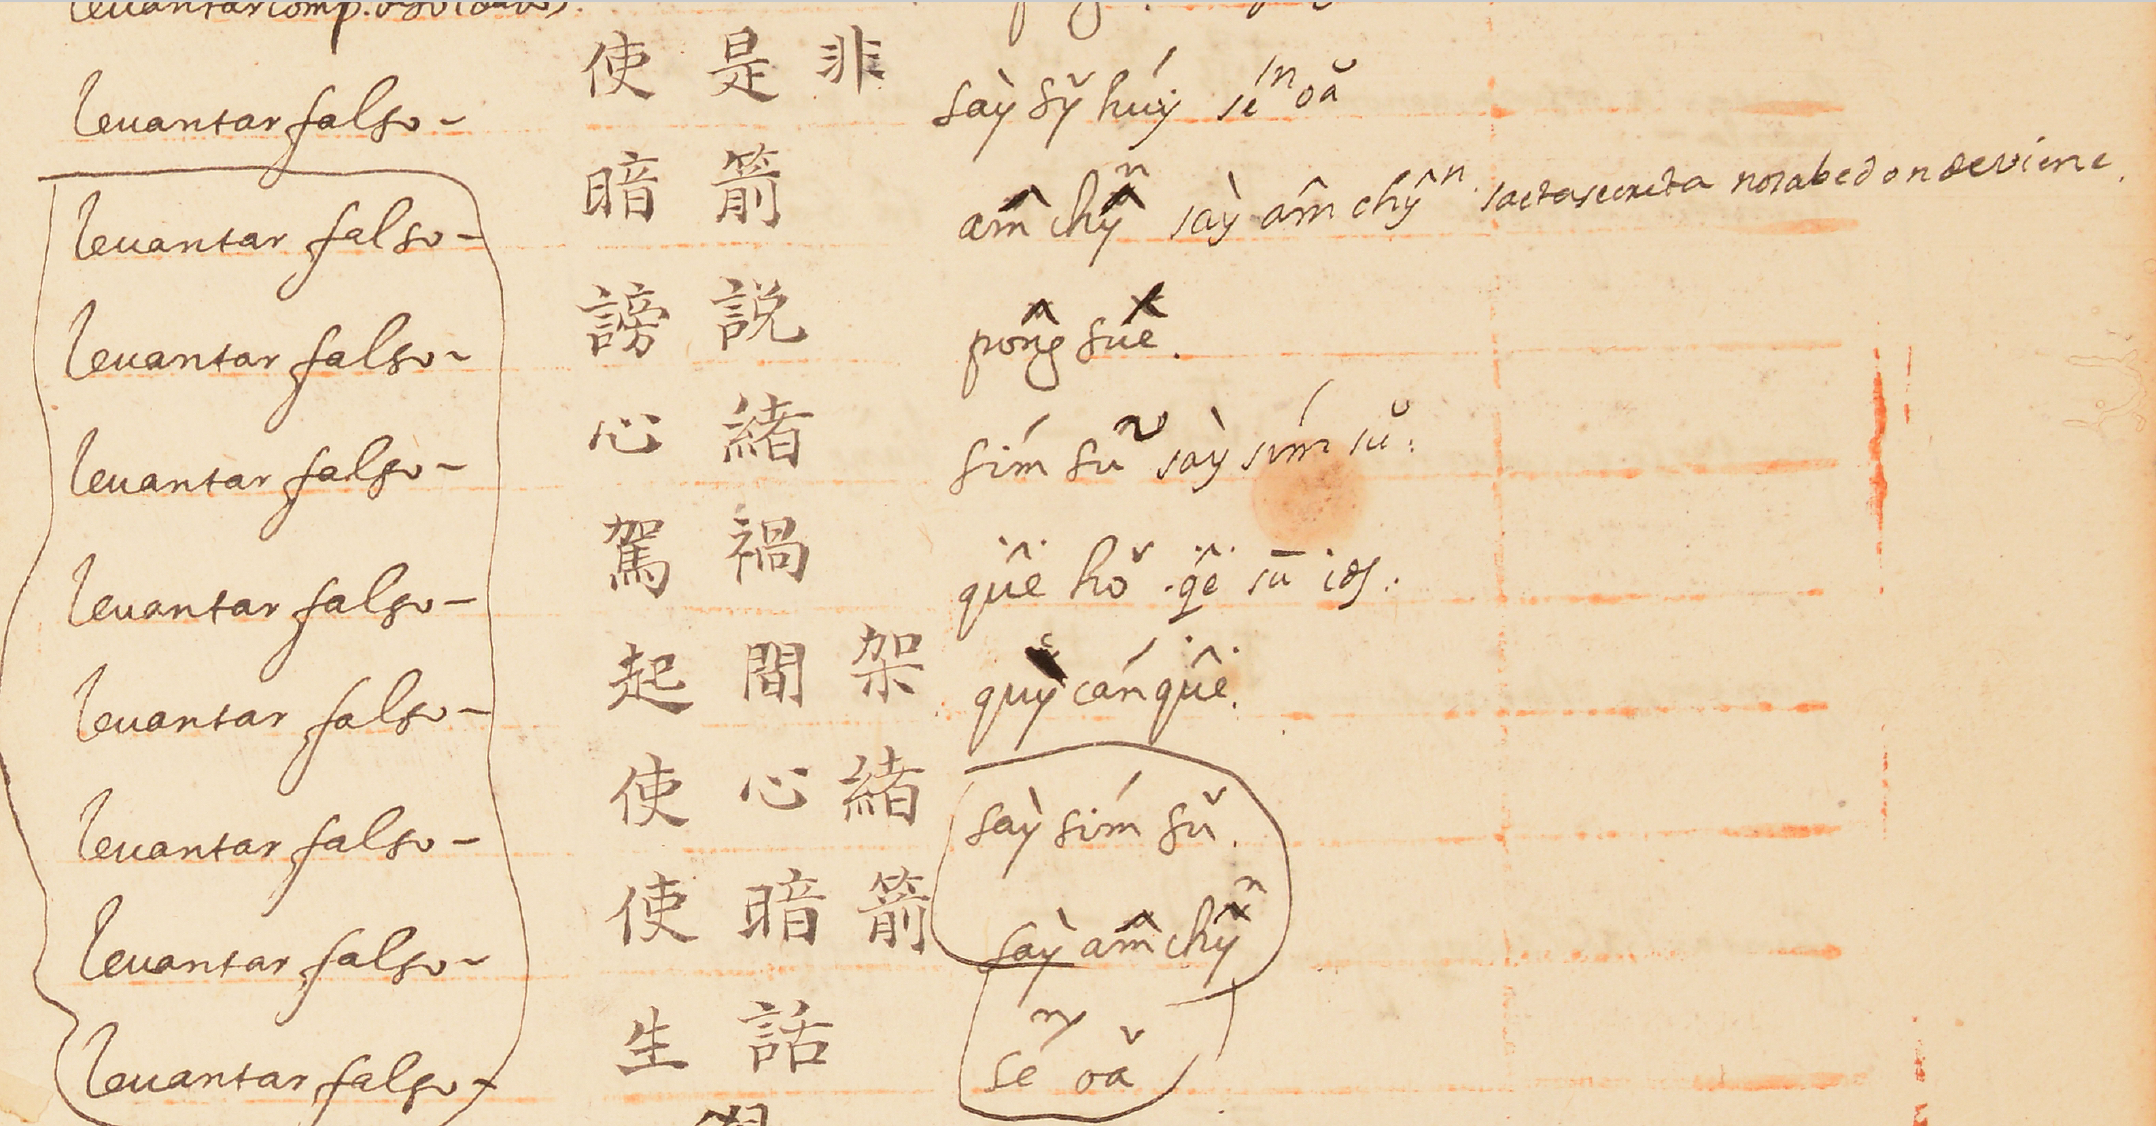 leuantar falso - 使 是 非 saỳ sy̌ húy sé ⁿ oǎ
leuantar falso - 暗 箭 am̂ chŷⁿ saỳ am̂ chŷⁿ. saeta secreta no sabe donde viene.
leuantar falso - 謗 説 pong̃ suê.
leuantar falso - 心 緒 sím sǔ saỳ sím sǔ:
leuantar falso - 駕 禍 quê hǒ . q̂e sū ids.
leuantar falso - 起 間 架 quỳ cań quê.
leuantar falso - 使 心 緒 saỳ sím sǔ.
leuantar falso - 使 暗 箭 saỳ am̂ chŷⁿ
leuantar falso - 生 話 séⁿ oǎ